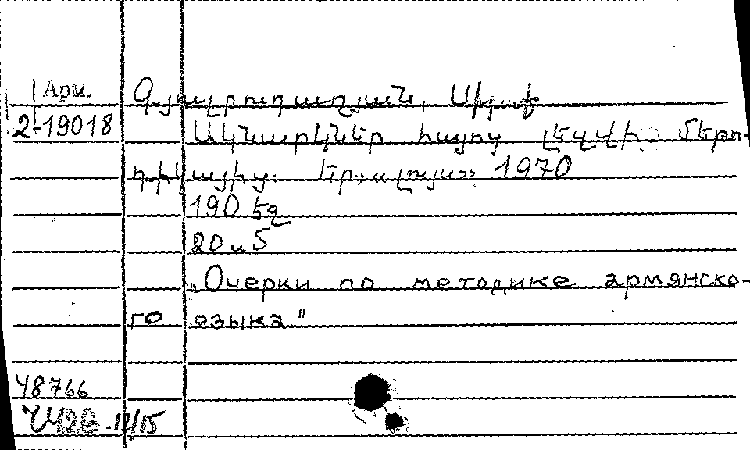 Арм.
2-19018
Գյուլբուդաղյան, Սիրաք
Ակնարկներ հայոց լեզվի մեթո-
դիկայից. Եր. 1970
190 էջ
20 և 5
„Очерки по методике армянско-
го языка"
48766
-11/15